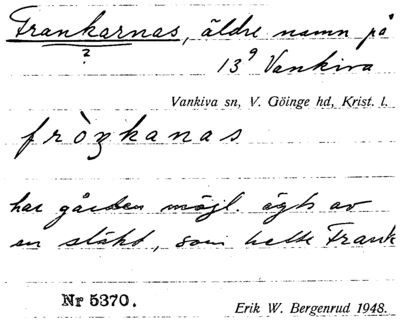 Frankarnas, äldre namn på
?
13⁹ Vankiva
Vankiva sn, V. Göinge hd, Krist. l.
fròŋkanas
har gården möjl. ägts av
en släkt, som hette Frank
Nr 5370.
Erik W. Bergenrud 1948.